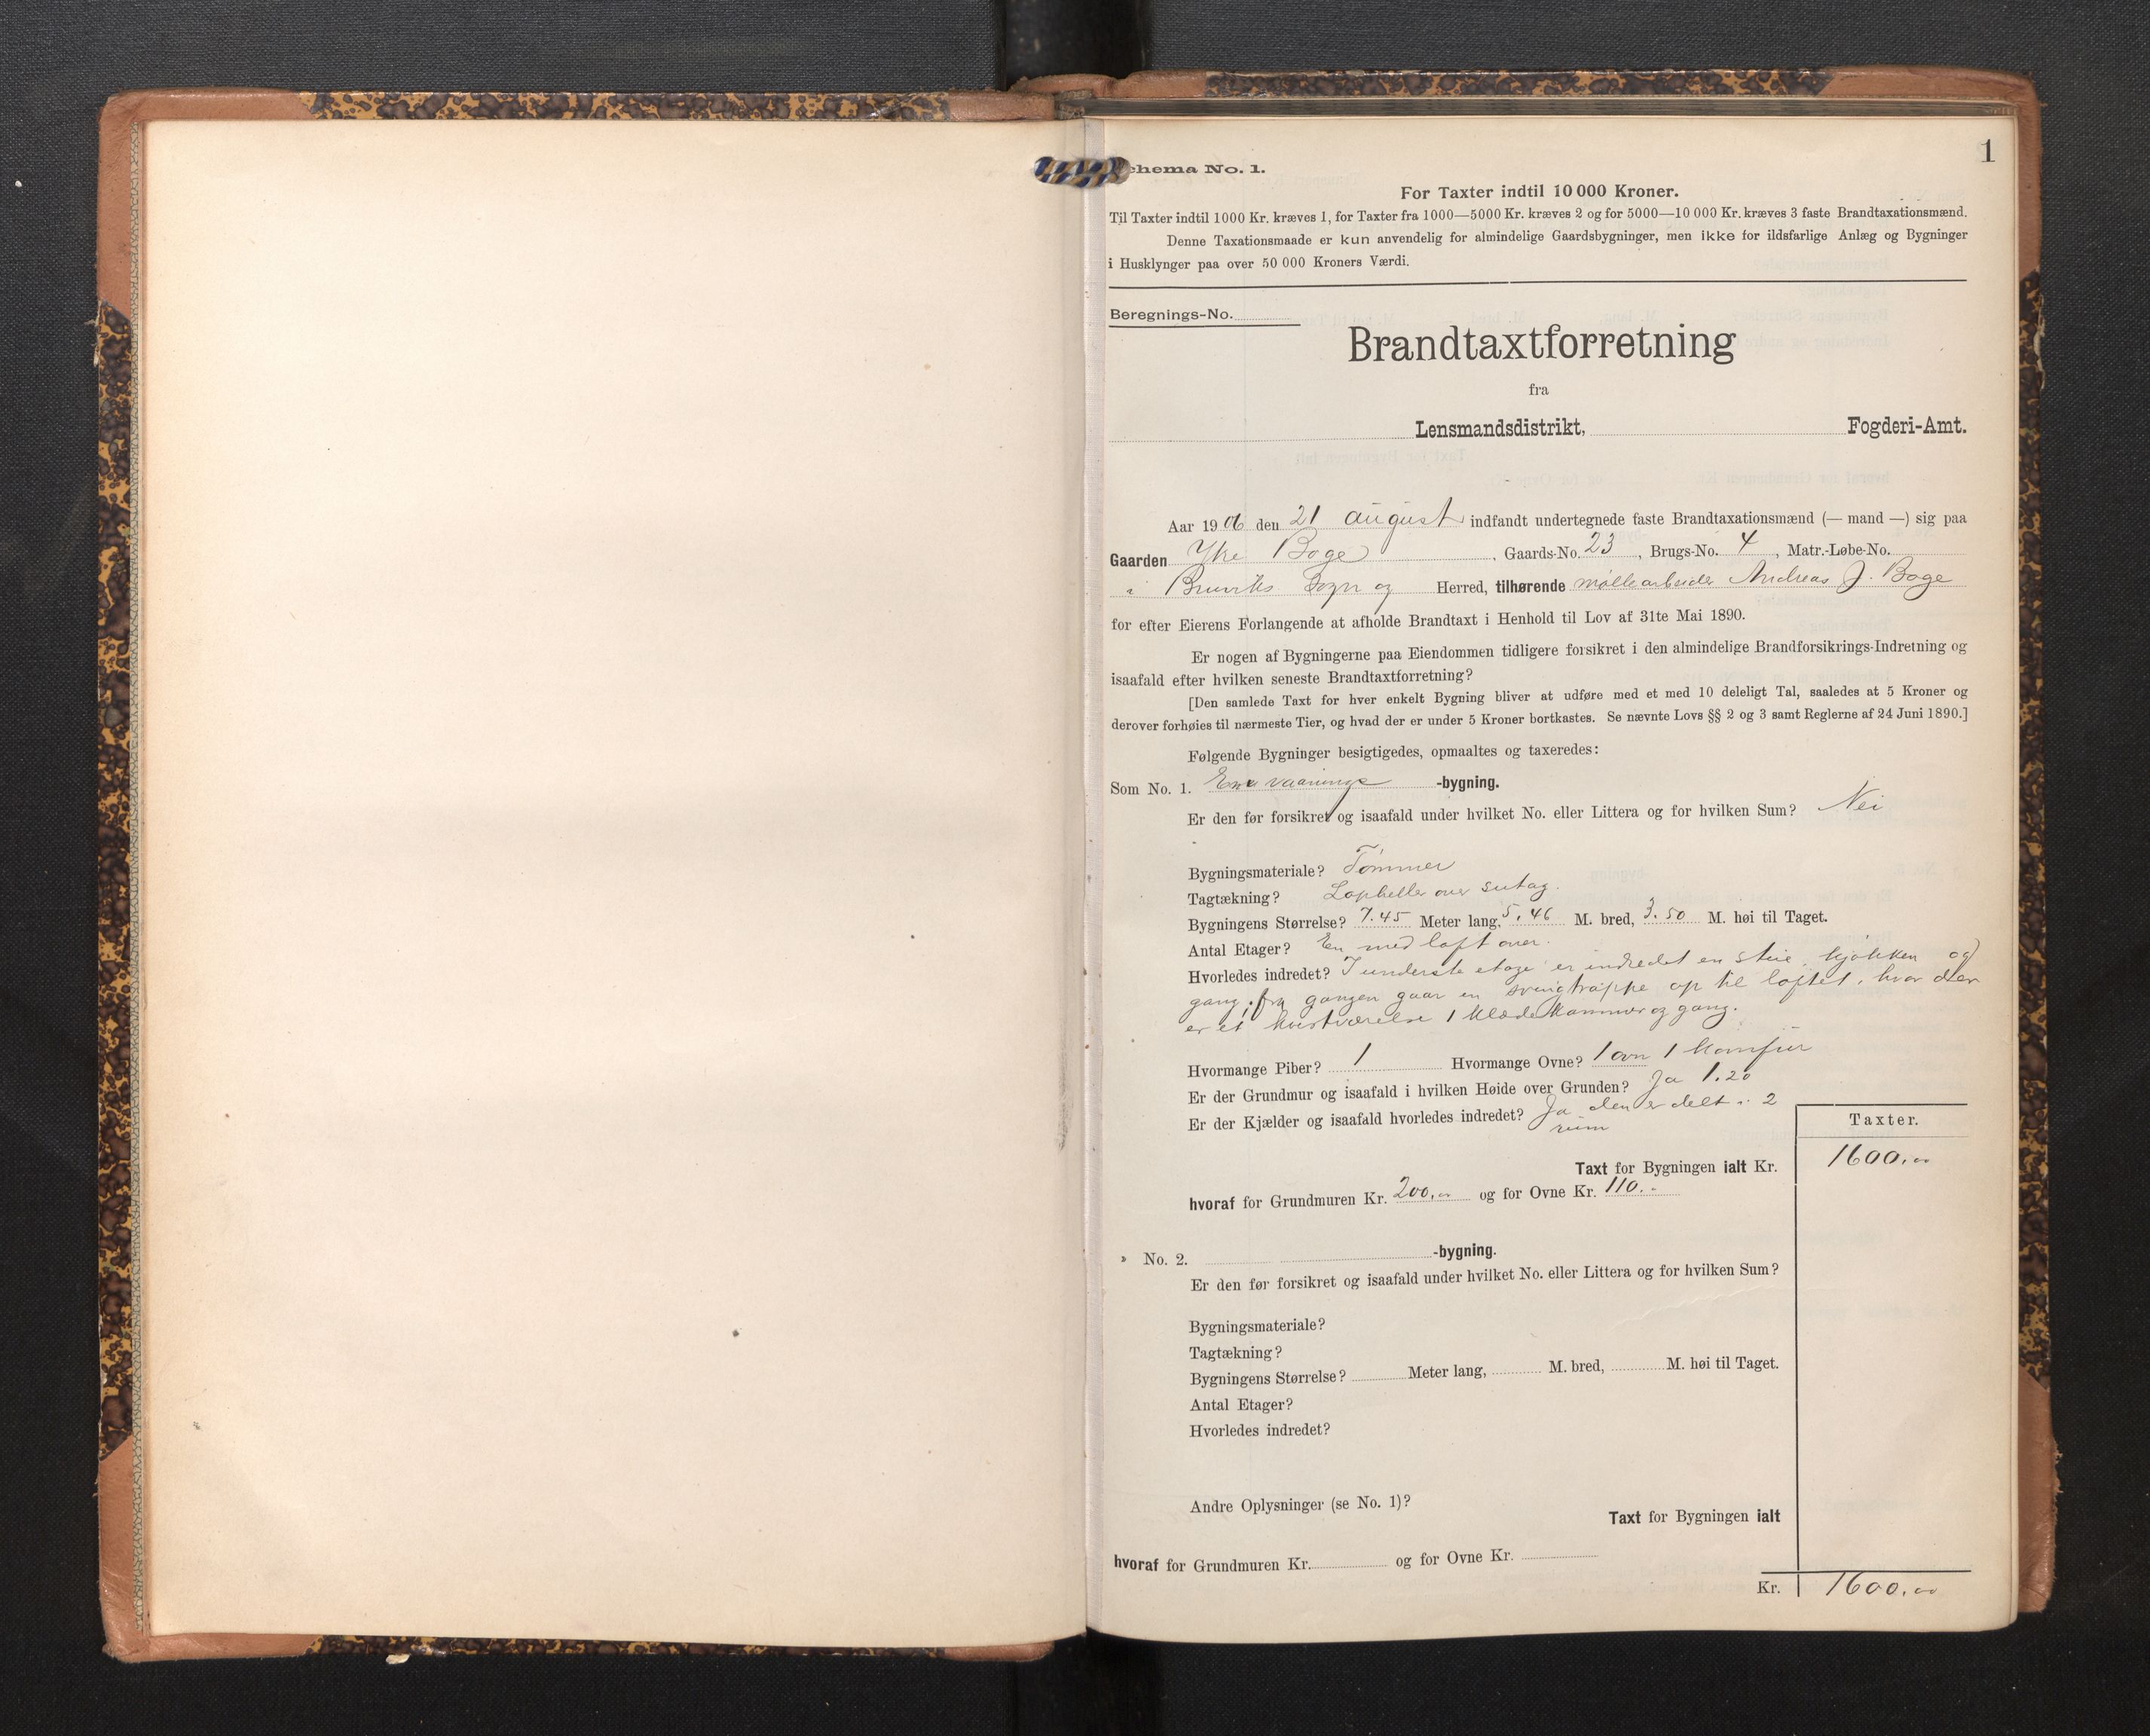 1
chema No. 1.
For Taxter indtil 10 000 Kroner.
Til Taxter indtil 1000 Kr. kræves 1, for Taxter fra 1000—5000 Kr. kræves 2 og for 5000—10 000 Kr. kræves 3 faste Brandtaxationsmænd.
Denne Taxationsmaade er kun anvendelig for almindelige Gaardsbygninger, men ikke for ildsfarlige Anlæg og Bygninger
i Husklynger paa over 50 000 Kroners Værdi.
Beregnings-No.
Brandtaxtforretning
fra
Lensmandsdistrikt, Fogderi-Amt.
Aar 1906 den 21 august indfandt undertegnede faste Brandtaxationsmænd (— mand —) sig paa
Gaarden Ytre Boge, Gaards-No. 23, Brugs-No. 4, Matr.-Løbe-No.
i Bruviks Sogn og Herred, tilhørende møllearbeider Andreas J. Boge
for efter Eierens Forlangende at afholde Brandtaxt i Henhold til Lov af 31te Mai 1890.
Er nogen af Bygningerne paa Eiendommen tidligere forsikret i den almindelige Brandforsikrings-Indretning og
isaafald efter hvilken seneste Brandtaxtforretning?
[Den samlede Taxt for hver enkelt Bygning bliver at udføre med et med 10 deleligt Tal, saaledes at 5 Kroner og
derover forhøies til nærmeste Tier, og hvad der er under 5 Kroner bortkastes. Se nævnte Lovs §§ 2 og 3 samt Reglerne af 24 Juni 1890.]
Følgende Bygninger besigtigedes, opmaaltes og taxeredes:
Som No. 1. vaanings -bygning.
Er den før forsikret og isaafald under hvilket No. eller Littera og for hvilken Sum? Nei
Bygningsmateriale? Tømmer
Tagtækning? over sutag.
Bygningens Størrelse? 7.45 Meter lang, 5.46 M. bred, 3.50 M. høi til Taget.
Antal Etager? En med loft over.
Hvorledes indredet? I underste etage er indredet en stue, kjøkken og
gang; fra gangen gaar en svingtrappe op til loftet, hvor der
er et 1 klædekammer og gang.
Hvormange Piber? 1 Hvormange Ovne? 1 ovn 1 komfur
Er der Grundmur og isaafald i hvilken Høide over Grunden? Ja 1.20
Er der Kjælder og isaafald hvorledes indredet? Ja den er delt i 2
rum
Taxter.
Taxt for Bygningen ialt Kr. 1600,00
hvoraf for Grundmuren Kr. 200,00 og for Ovne Kr. 110.-
» No. 2. -bygning.
Er den før forsikret og isaafald under hvilket No. eller Littera og for hvilken Sum?
Bygningsmateriale?
Tagtækning?
Bygningens Størrelse? Meter lang, M. bred, M. høi til Taget.
Antal Etager?
Hvorledes indredet?
Andre Oplysninger (se No. 1)?
Taxt for Bygningen ialt
hvoraf for Grundmuren Kr. og for Ovne Kr.
Kr. 1600,00